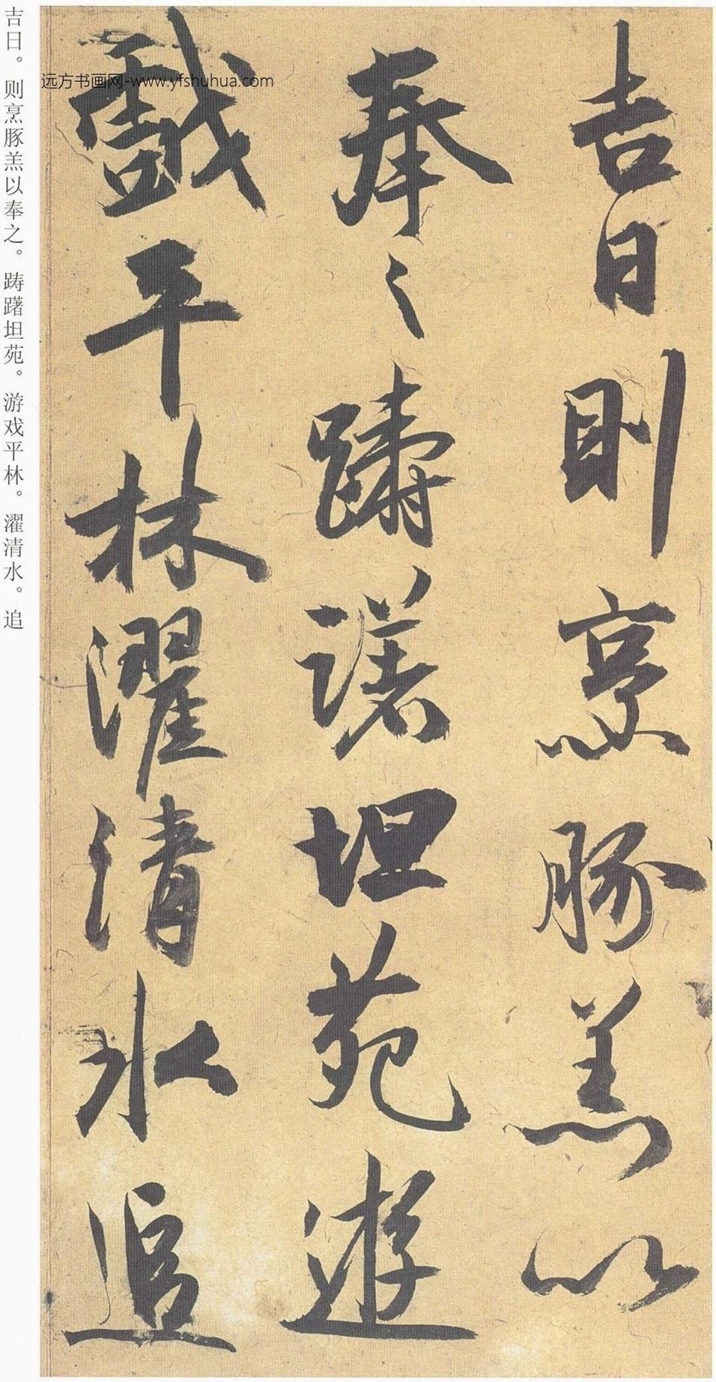 吉日則烹豚羔以
奉〻躊躇坦苑遊
戲平林濯清水追
远方书画网-www.yfshuhua.com
吉日。则烹豚羔以奉之。踌躇坦苑。游戏平林。濯清水。追